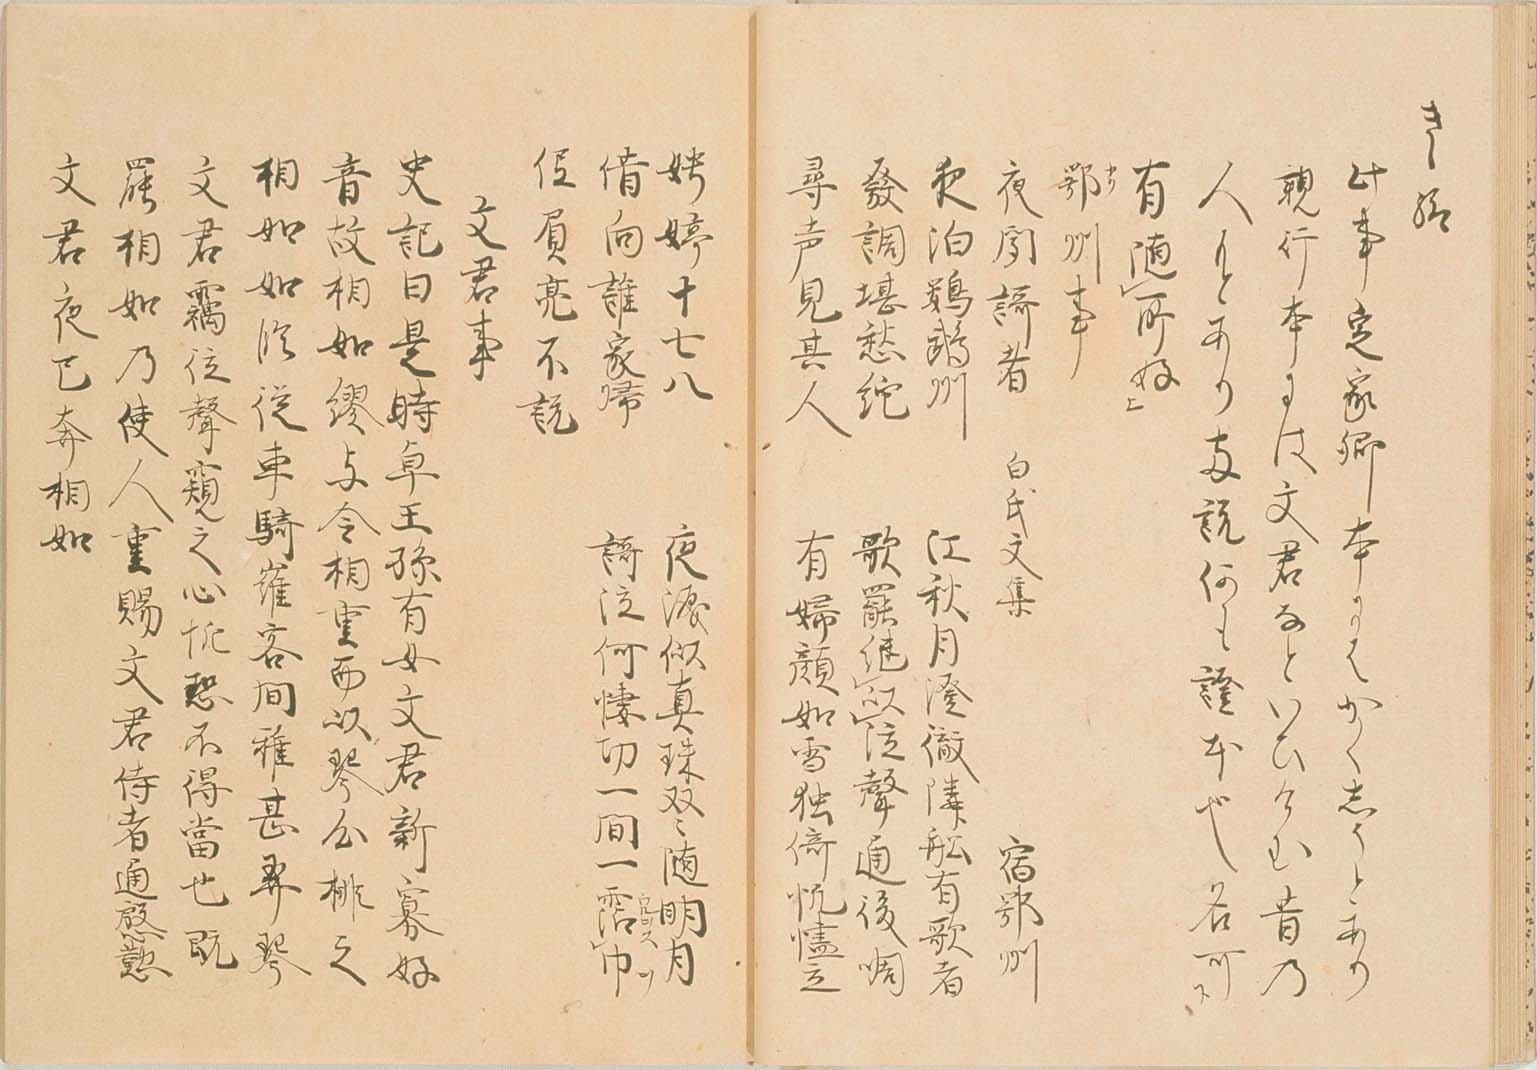 きし給
此事定家卿本にはかくしるしとあり
親行本には文君などといひけむ昔の
人もとあり両説何も証本也各可
有随所好上
鄂州事
夜聞謌者　白氏文集　宿鄂州
夜泊鸚鵡州　江秋月澄徹隣舩有歌者
發調堪愁絶　歌罷継以泣聲通復咽
尋声見其人　有婦顔如雪独倚帆檣立
娉婷十七八　夜涙似真珠双々随明月
借向誰家帰　謌泣何悽切一問一霑巾
低眉亮不説
文君事
史記曰是時卓王孫有女文君新寡好
音故相如繆与令相重而以琴心挑之
相如如臨従車騎雍容間雅甚弄琴
文君竊従聲窺之心恱恐不得當也既
罷相如乃使人重賜文君侍者通慇懃
文君夜已奔相如